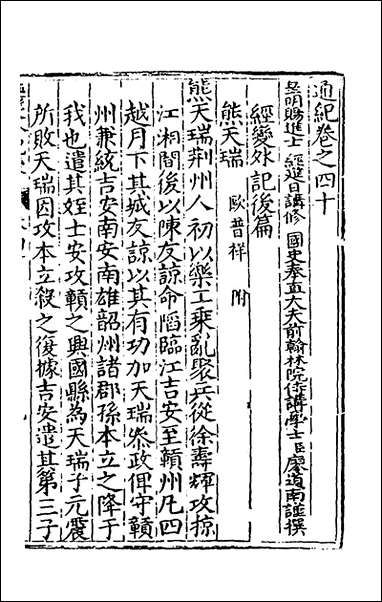 通紀卷之四十
皇明賜進士 經筵日講修 國史奉直大夫前翰林院侍講學士臣廖道南謹撰
經變外記後篇
熊天瑞 歐普祥 附
熊天瑞荆州人初以樂工乘亂聚兵從徐壽輝攻掠
江湘間後以陳友諒命䧟臨江吉安至贛州凡四
越月下其城友諒以其有功加天瑞叅政俾守贛
州兼統吉安南安南雄韶州諸郡孫本立之降于
我也遣其姪士安攻贛之興國縣為天瑞子元震
所敗天瑞因攻本立殺之復據吉安遣其第三子